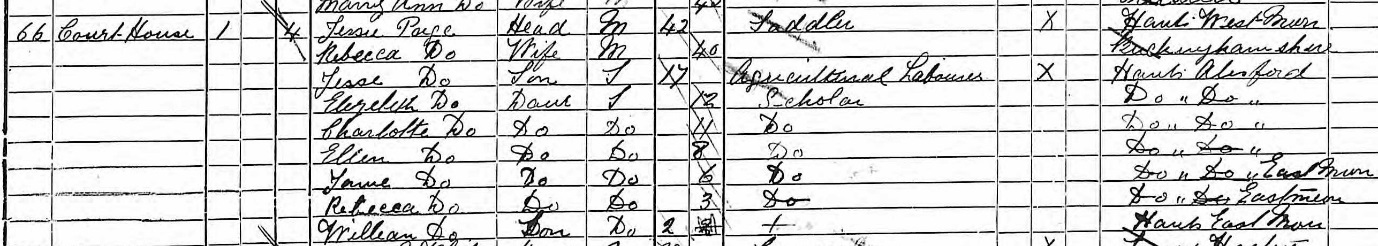 Ann Do Wife
66 Court House 1 4 Jessie Paige Head M 42 Saddler X Hants West Meon
Rebecca Do Wife M 40 Buckinghamshire
Jesse Do Son S 17 Agricultural Labourer X Hants Alesford
Elizebeth Do Daur S 12 Scholar Do " Do "
Charlotte Do Do Do 11 Do Do " Do "
Ellen Do Do Do 8 Do Do " Do "
Jame Do Do Do 6 Do Do " Do " East Meon
Rebecca Do Do Do 3 Do Do " Do Eastmeon
William Do Son Do 2 Hants East Meon